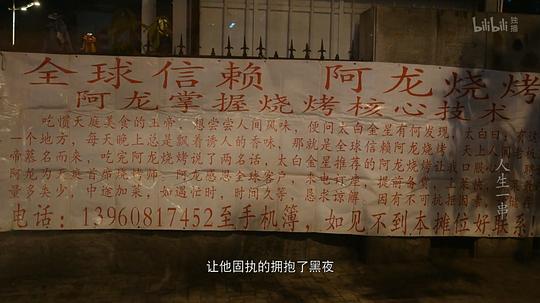 bilibili 独播
全球信赖 阿龙烧烤
阿龙掌握烧烤核心技术
吃惯天庭美食的玉帝，想尝尝人间风味，便问太白金星有何发现，太白曰：有这
一个地方，每天晚上总是飘着诱人的香味，那就是全球信赖阿龙烧烤
帝慕名而来，吃完阿龙烧烤说了两名话，太白金星推荐的阿龙烧烤让我口服
阿龙为天庭首席烧烤师 阿龙感恩全球客户，来电订座，提前备货
量多类少，中途加菜，如遇忙时，时间久等，恳求谅解
电话：13960817452至手机簿，如见不到本摊位好联系！
人生一串
让他固执的拥抱了黑夜